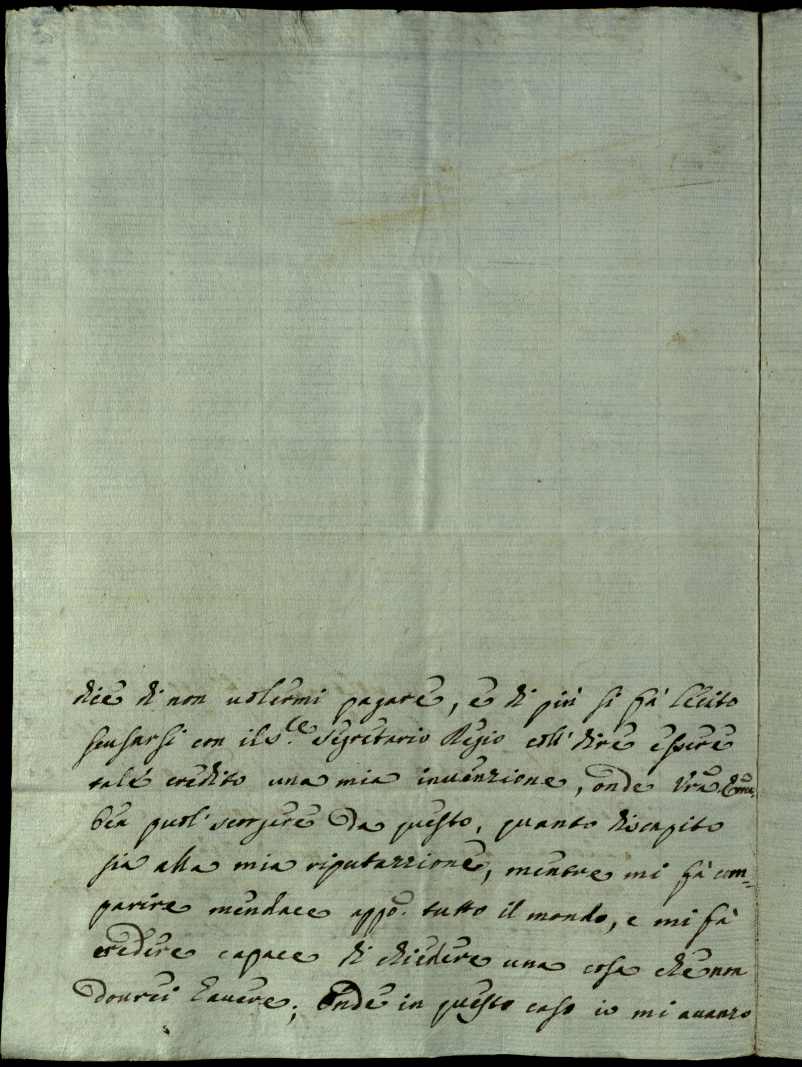 dice di non volermi pagare, e di più si fà lecito
scusarsi con il S.re Segretario Regio coll' dire essere
tale credito una mia invenzione, onde Vra Emza
ben puol' scorgere da questo, quanto discapito
sia alla mia riputazzione, mentre mi fà com=
parire mendace appo. tutto il mondo, e mi fà
credere capace di chiedere una cosa che non
dovrei havere; Onde in questo caso io mi avanzo